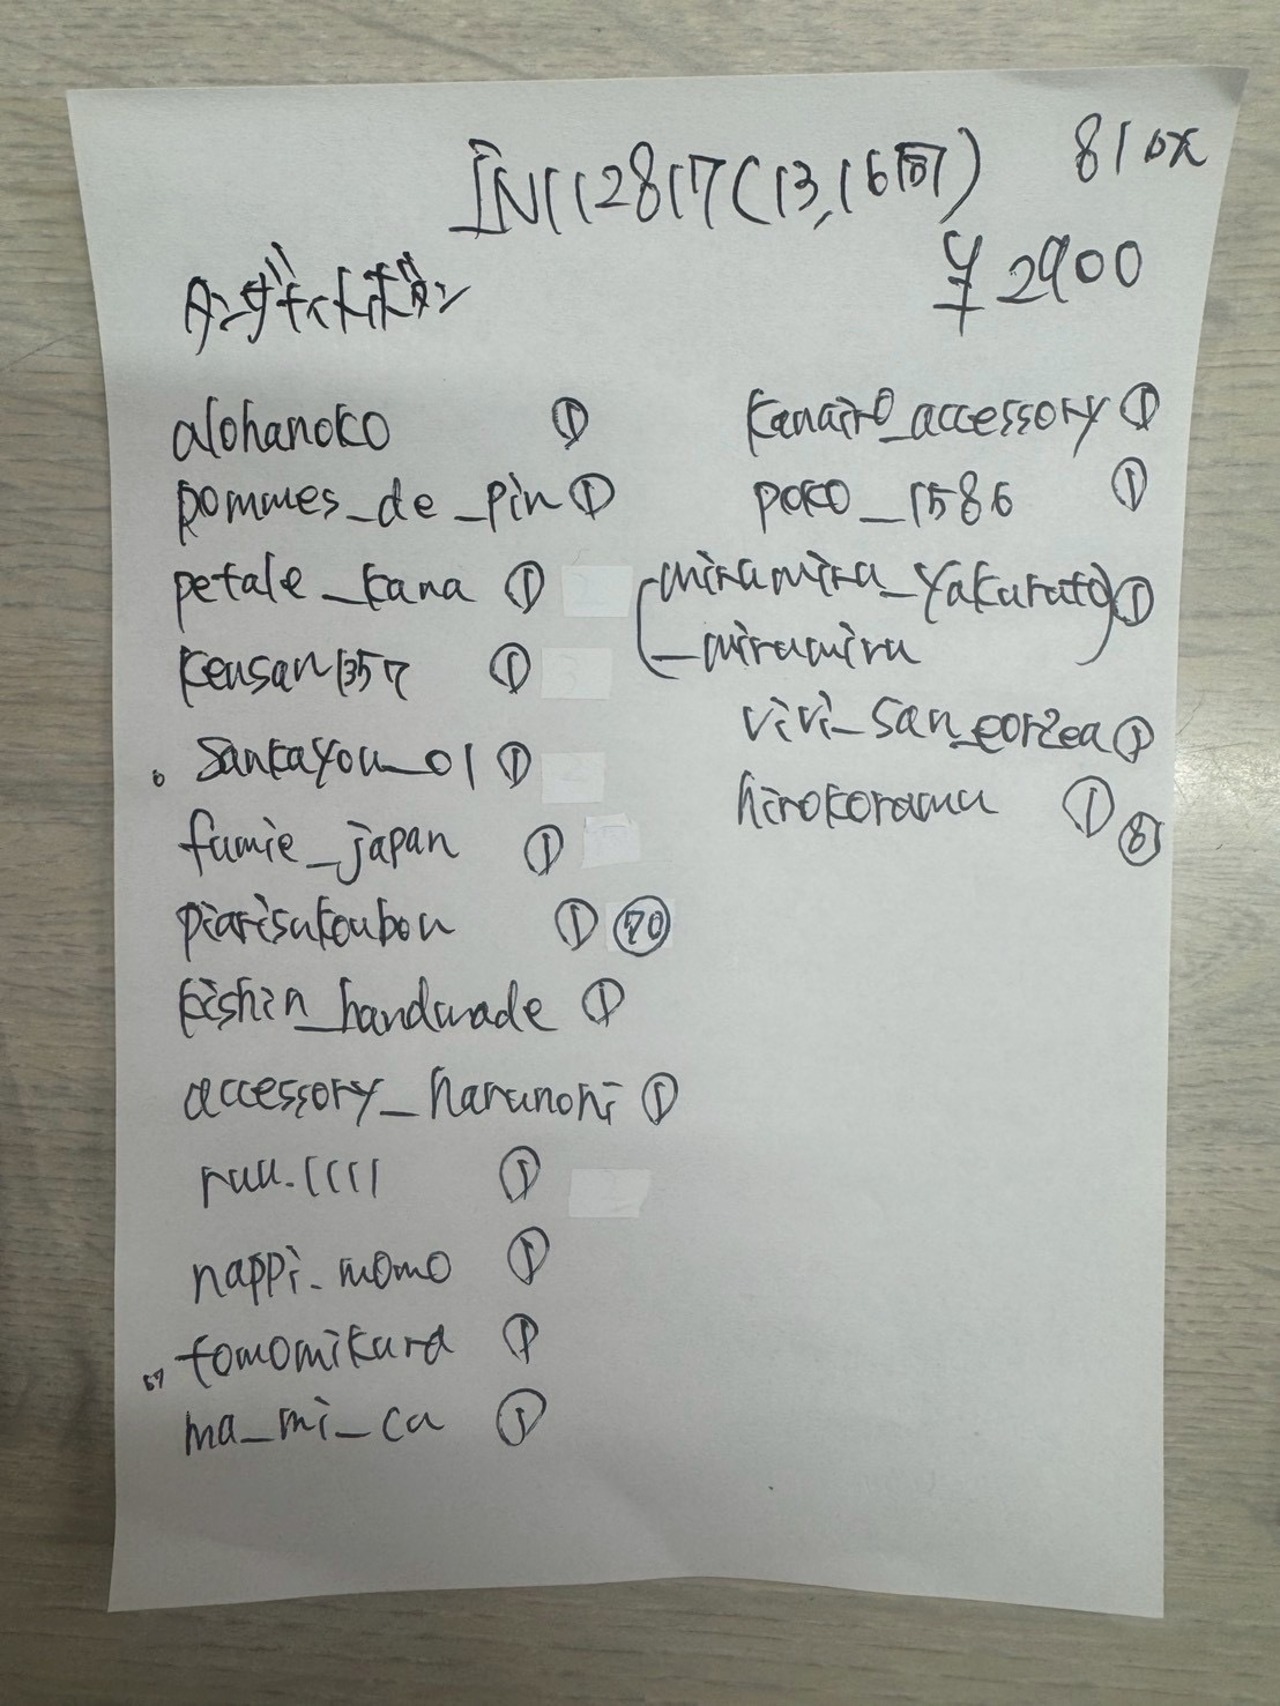 IN112817(13,16的)
81 px
¥2900
タンザナイトボタン
alohanoko ①
pommes_de_pin ①
petale_kana ①
kensan1357 ①
sankayou_01 ①
fumie_japan ①
piarisukoubou ① 70
kishin_handmade ①
accessory_harunohi ①
ruu.1111 ①
nappi_momo ①
67 tomomikura ①
ma_mi_ca ①
kanairo_accessory ①
poko_1586 ①
(miramira_yakurato ①
_miramira)
vivi_san_eorzea ①
hirokoramu ① ⑧